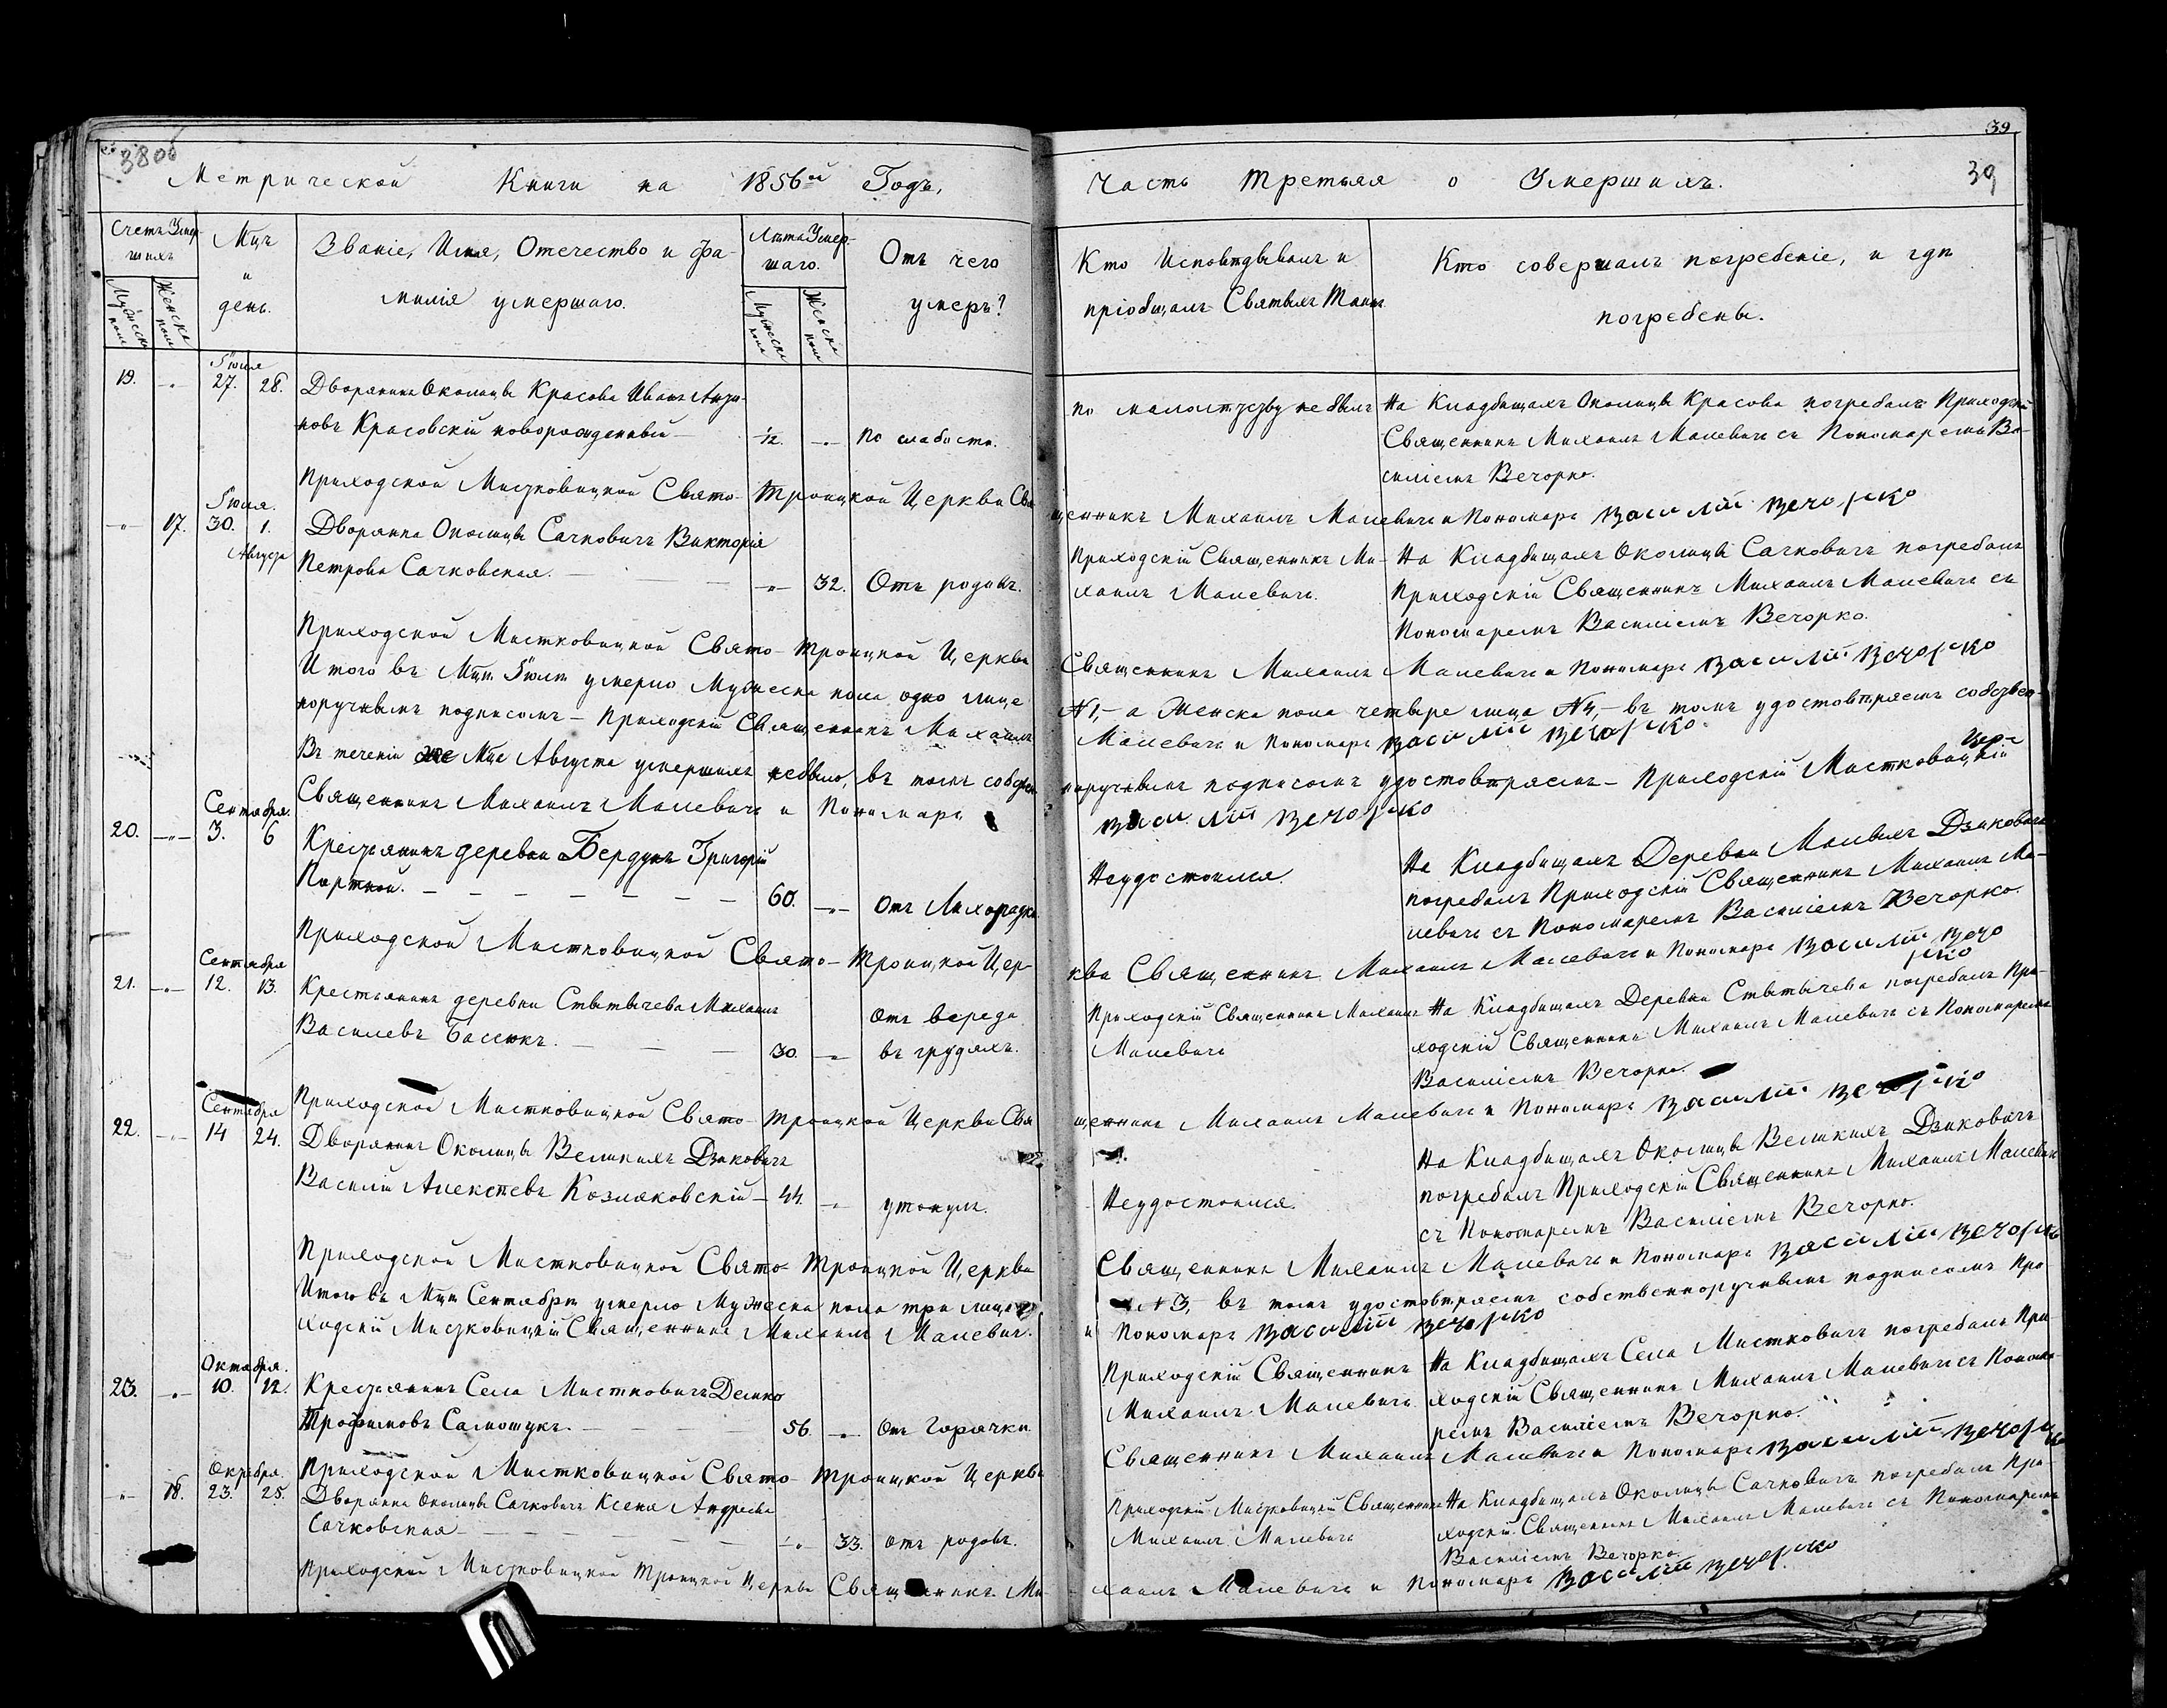 38об
39
39
Метрической Книги на 1856й Годъ,
Часть Третья о Умершихъ.
Счетъ Умершихъ
Мужеска пола
Женска пола
Мцъ и день.
Званіе, Имя, Отечество и Фа-
милія умершаго.
Лѣта Умер-
шаго.
Мужеска пола
Женска пола
Отъ чего
умеръ?
Кто Исповѣдывалъ и
пріобщалъ Святыхъ Таинъ
Кто совершалъ погребеніе, и гдѣ
погребены.
19. -„- Іюля 27. 28. Дворянинъ Околицы Красова Иванъ
новъ Красовскій новорожденный — 1/12. -„- По слабости.
По малолѣтству не былъ
На Кладбищахъ Околицы Красова погребалъ Приходскій
Священникъ Михаилъ Малевичъ съ Пономаремъ Ва-
силіемъ Вечорко.
Приходской Мистковицкой Свято-Троицкой Церкви Свя
щенникъ Михаилъ Малевичъ и Пономарь Василій Вечорко
-„- 17. Іюля. 30. 1. Августа Дворянка Околицы Сачковичъ Викторія
Петрова Сачковская. — -„- 32. Отъ родивъ.
Приходскій Священникъ Ми-
хаилъ Малевичъ.
На Кладбищахъ Околицы Сачковичъ погребалъ
Приходскій Священникъ Михаилъ Малевичъ съ
Пономаремъ Василіемъ Вечорко.
Приходской Мистковицкой Свято-Троицкой Церкви
Священникъ Михаилъ Малевичъ и Пономарь Василій Вечорко
Итого въ Мцѣ Іюлѣ умерло Мужеска пола одно лице
№1,— а Женска пола четыре лица №4,— въ томъ удостовѣряемъ собствен-
норучнымъ подписомъ — Приходскій Священникъ Михаилъ
Малевичъ и Пономарь Василій Вечорко
Въ теченіи же Мца Августа умершихъ не было, въ томъ собствен
норучнымъ подписомъ удостовѣряемъ — Приходскій Мистковицкій
Священникъ Михаилъ Малевичъ и Пономарь
Василій Вечорко
20. -„- Сентября. 3. 6 Крестьянинъ деревни Бердунъ Григорій
Портной. — 60. -„- Отъ Лихорадки
Неудостоился.
На Кладбищахъ Деревни Малыхъ Дзиковичъ
погребалъ Приходскій Священникъ Михаилъ Ма-
левичъ съ Пономаремъ Василіемъ Вечорко.
Приходской Мистковицкой Свято-Троицкой Цер-
кви Священникъ Михаилъ Малевичъ и Пономарь Василій Вечо
рко
21. -„- Сентября 12. 13. Крестьянинъ деревни Стытычева Михаилъ
Василевъ Басюкъ. — 30. -„- Отъ вереда
въ грудяхъ.
Приходскій Священникъ Михаилъ
Малевичъ
На Кладбищахъ Деревни Стытычева погребалъ При-
ходскій Священникъ Михаилъ Малевичъ съ Пономаремъ
Василіемъ Вечорко.
Приходской Мистковицкой Свято-Троицкой Церкви Свя
щенникъ Михаилъ Малевичъ и Пономарь Василій Вечорко
22. -„- Сентября 14 24. Дворянинъ Околицы Великихъ Дзиковичъ
Василій Алексѣевъ Козляковскій — 44. -„- утонулъ.
Неудостоился.
На Кладбищахъ Околицы Великихъ Дзиковичъ
погребалъ Приходскій Священникъ Михаилъ Малевичъ
съ Пономаремъ Василіемъ Вечорко.
Приходской Мистковицкой Свято-Троицкой Церкви
Священникъ Михаилъ Малевичъ и Пономарь Василій Вечорко
Итого въ Мцѣ Сентябрѣ умерло Мужеска пола три лица
№3, въ томъ удостовѣряемъ собственноручнымъ подписомъ При
ходскій Мистковицкій Священникъ Михаилъ Малевичъ.
и Пономарь Василій Вечорко
23. -„- Октября. 10. 12. Крестьянинъ Села Мистковичъ Демко
Трофимовъ Самошукъ. — 56. -„- Отъ Горячки
Приходскій Священникъ
Михаилъ Малевичъ
На Кладбищахъ Села Мистковичъ погребалъ При
ходскій Священникъ Михаилъ Малевичъ съ Понома-
ремъ Василіемъ Вечорко.
Приходской Мистковицкой Свято-Троицкой Церкви
Священникъ Михаилъ Малевичъ и Пономарь Василій Вечорко
-„- 18. Октября. 23. 25. Дворянка Околицы Сачковичъ Ксенія Андреева
Сачковская — -„- 33. Отъ родовъ.
Приходскій Мистковицкій Священникъ
Михаилъ Малевичъ
На Кладбищахъ Околицы Сачковичъ погребалъ При-
ходскій Священникъ Михаилъ Малевичъ съ Пономаремъ
Василіемъ Вечорко.
Приходской Мистковицкой Троицкой Церкви Священникъ Ми
хаилъ Малевичъ и Пономарь Василій Вечорко